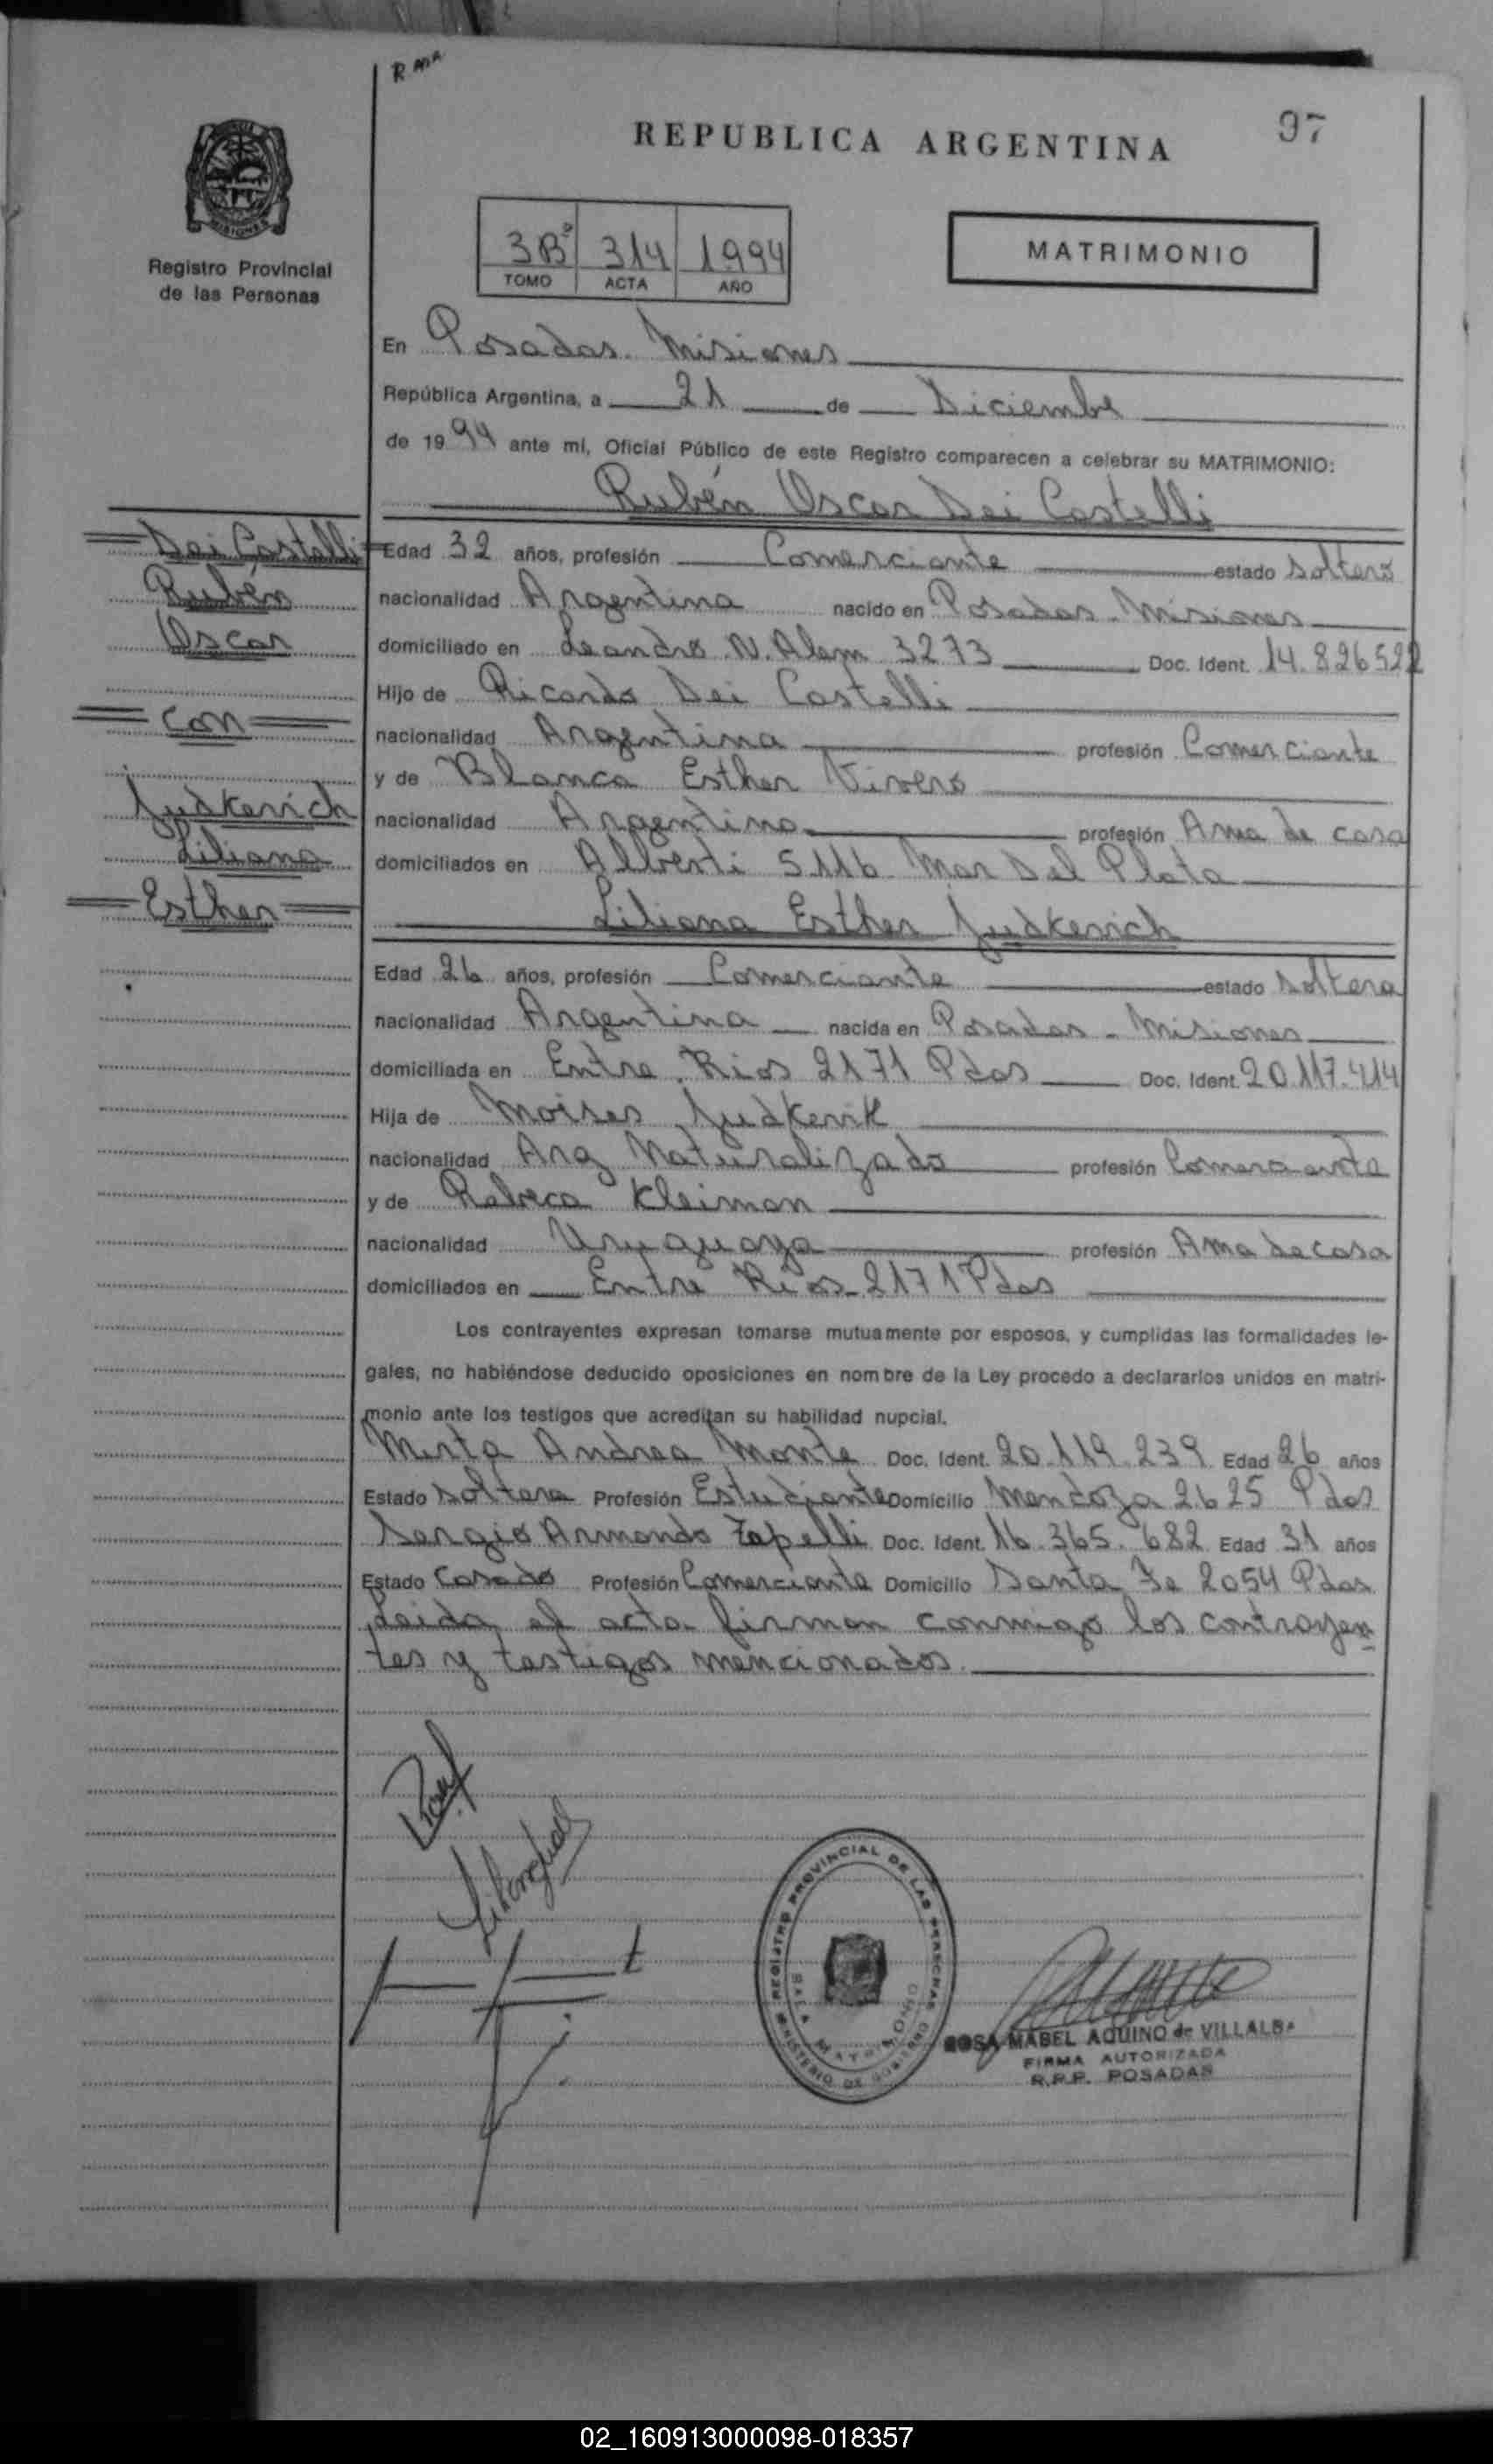 97
REPUBLICA ARGENTINA
MISIONES
Registro Provincial
de las Personas
3Bº 314 1994
TOMO ACTA AÑO
MATRIMONIO
En Posadas. Misiones
República Argentina, a 21 de Diciembre
de 1994 ante mi, Oficial Público de este Registro comparecen a celebrar su MATRIMONIO:
Rubén Oscar Dei Castelli
Dei Castelli
Rubén
Oscar
con
Judkevich
Liliana
Esther
Edad 32 años, profesión Comerciante estado soltero
nacionalidad Argentina nacido en Posadas - Misiones
domiciliado en Leandro N. Alem 3273 Doc. Ident. 14.826522
Hijo de Ricardo Dei Castelli
nacionalidad Argentina profesión Comerciante
y de Blanca Esther Vivero
nacionalidad Argentina profesión Ama de casa
domiciliados en Alberti 5116 Mar Del Plata
Liliana Esther Judkevich
Edad 26 años, profesión Comerciante estado soltera
nacionalidad Argentina nacida en Posadas - Misiones
domiciliada en Entre Rios 2171 Pdas Doc. Ident. 20.117.414
Hija de Moises Judkevik
nacionalidad Arg Naturalizado profesión Comerciante
y de Rebeca Kleiman
nacionalidad Uruguaya profesión Ama de casa
domiciliados en Entre Rios - 2171 Pdas
Los contrayentes expresan tomarse mutuamente por esposos, y cumplidas las formalidades le-
gales, no habiéndose deducido oposiciones en nombre de la Ley procedo a declararlos unidos en matri-
monio ante los testigos que acreditan su habilidad nupcial.
Mirta Andrea Monte Doc. Ident. 20.119.239 Edad 26 años
Estado soltera Profesión Estudiante Domicilio Mendoza 2625 Pdas
Sergio Armando Zapelli Doc. Ident. 16.365.682 Edad 31 años
Estado Casado Profesión Comerciante Domicilio Santa Fe 2054 Pdas
Leida el acta firman conmigo los contrayen
tes y testigos mencionados.
REGISTRO PROVINCIAL DE LAS PERSONAS
SALA MATRIMONIO
MINISTERIO DE GOBIERNO
ROSA MABEL AQUINO de VILLALBA
FIRMA AUTORIZADA
R.P.P. POSADAS
02_160913000098-018357